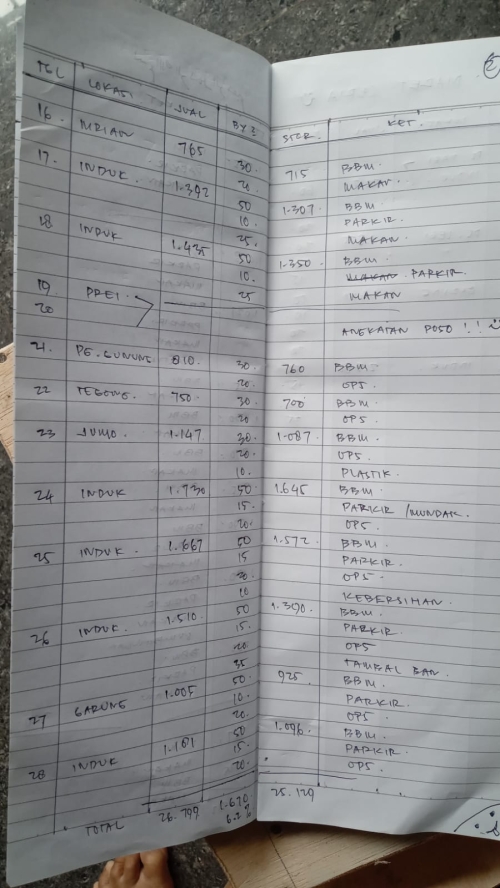 TGL LOKASI JUAL BY2 STOR. KET.
16. MRICAN 765 30. 715 BBM.
20 MAKAN.
17. INDUK. 1.392 50 1.307. BBM.
10. PARKIR.
25. MAKAN.
18 INDUK 1.435 50 1.350. BBM.
10. MAKAN PARKIR.
25 MAKAN
19. PREI.
20 ANGKATAN POSO !!
21. PS. GUNUNG 810. 30. 760 BBM.
20. OPS.
22 TEGONG. 750. 30. 700 BBM.
20 OPS.
23 JUMO. 1.147 30. 1.087. BBM.
20. OPS.
10. PLASTIK.
24 INDUK 1.730 50 1.645 BBM.
15. PARKIR / MUNDAK.
20. OPS
25 INDUK. 1.667 50 1.572. BBM.
15 PARKIR.
20. OPS.
10 KEBERSIHAN.
26 INDUK. 1.510. 50 1.390. BBM.
15. PARKIR.
20. OPS
35 TAMBAL BAN.
27 GARUNG 1.005 50. 925 BBM.
10. PARKIR.
20. OPS.
28 INDUK 1.181 50 1.096. BBM.
15. PARKIR.
20. OPS.
TOTAL 26.799 1.670 25.129
6.2 %